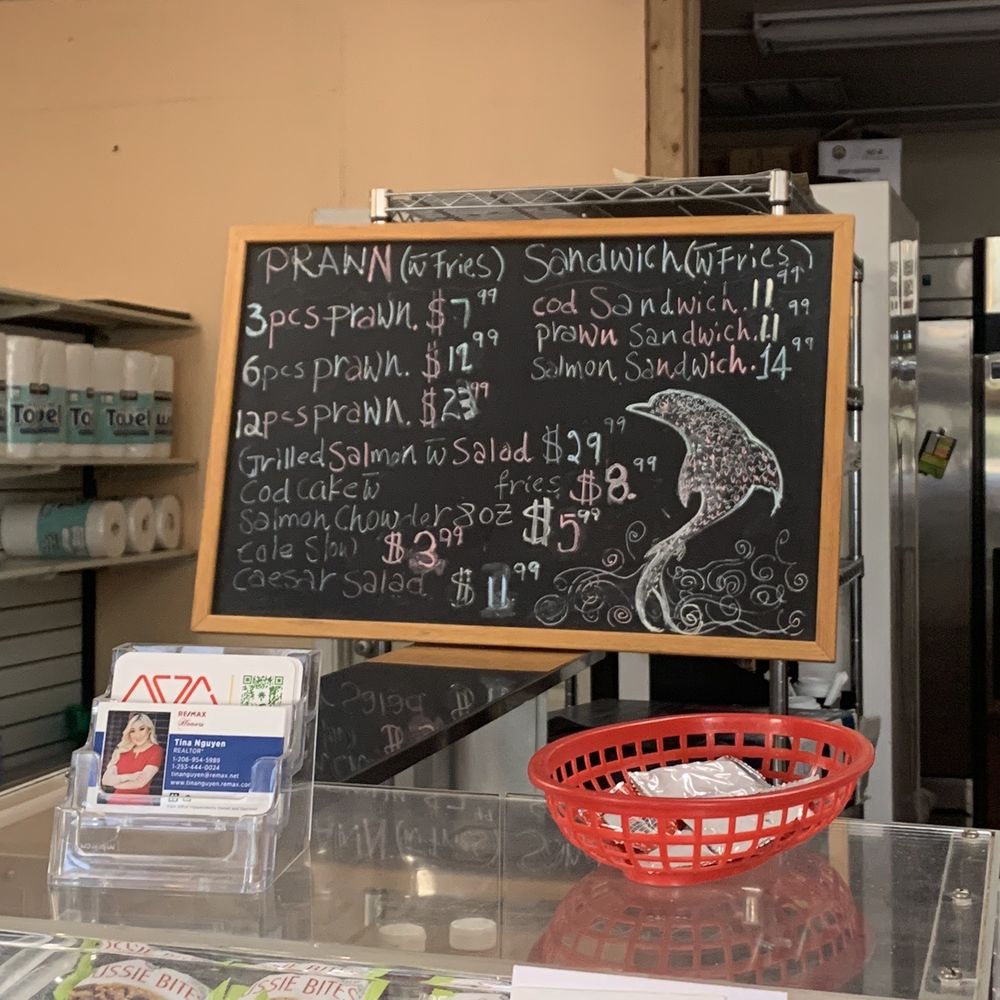 PRAWN (w̄ Fries)
3pcs prawn. $7.99
6pcs prawn. $12.99
12pcs prawn. $23.99
Grilled Salmon w̄ Salad $29.99
Cod Cake w̄ fries $8.99
Salmon Chowder 8oz $5.99
Cole Slow $3.99
Caesar Salad $11.99
Sandwich (w̄ Fries)
cod Sandwich. 11.99
prawn Sandwich. 11.99
Salmon Sandwich. 14.99
Towel
To
Towel
RE/MAX
Tina Nguyen
REALTOR®
1-206-954-5989
1-253-444-0024
tinanguyen@remax.net
www.tinanguyen.remax.com
USSIE BITES
SSIE BITES